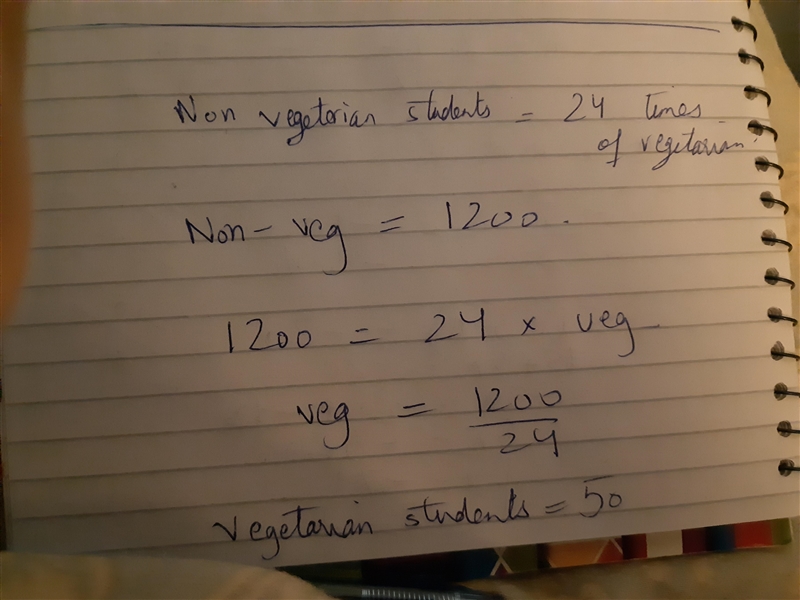 Non vegetarian students = 24 times
of vegetarian.
Non-veg = 1200.
1200 = 24 × veg
veg = 1200/24
Vegetarian students = 50